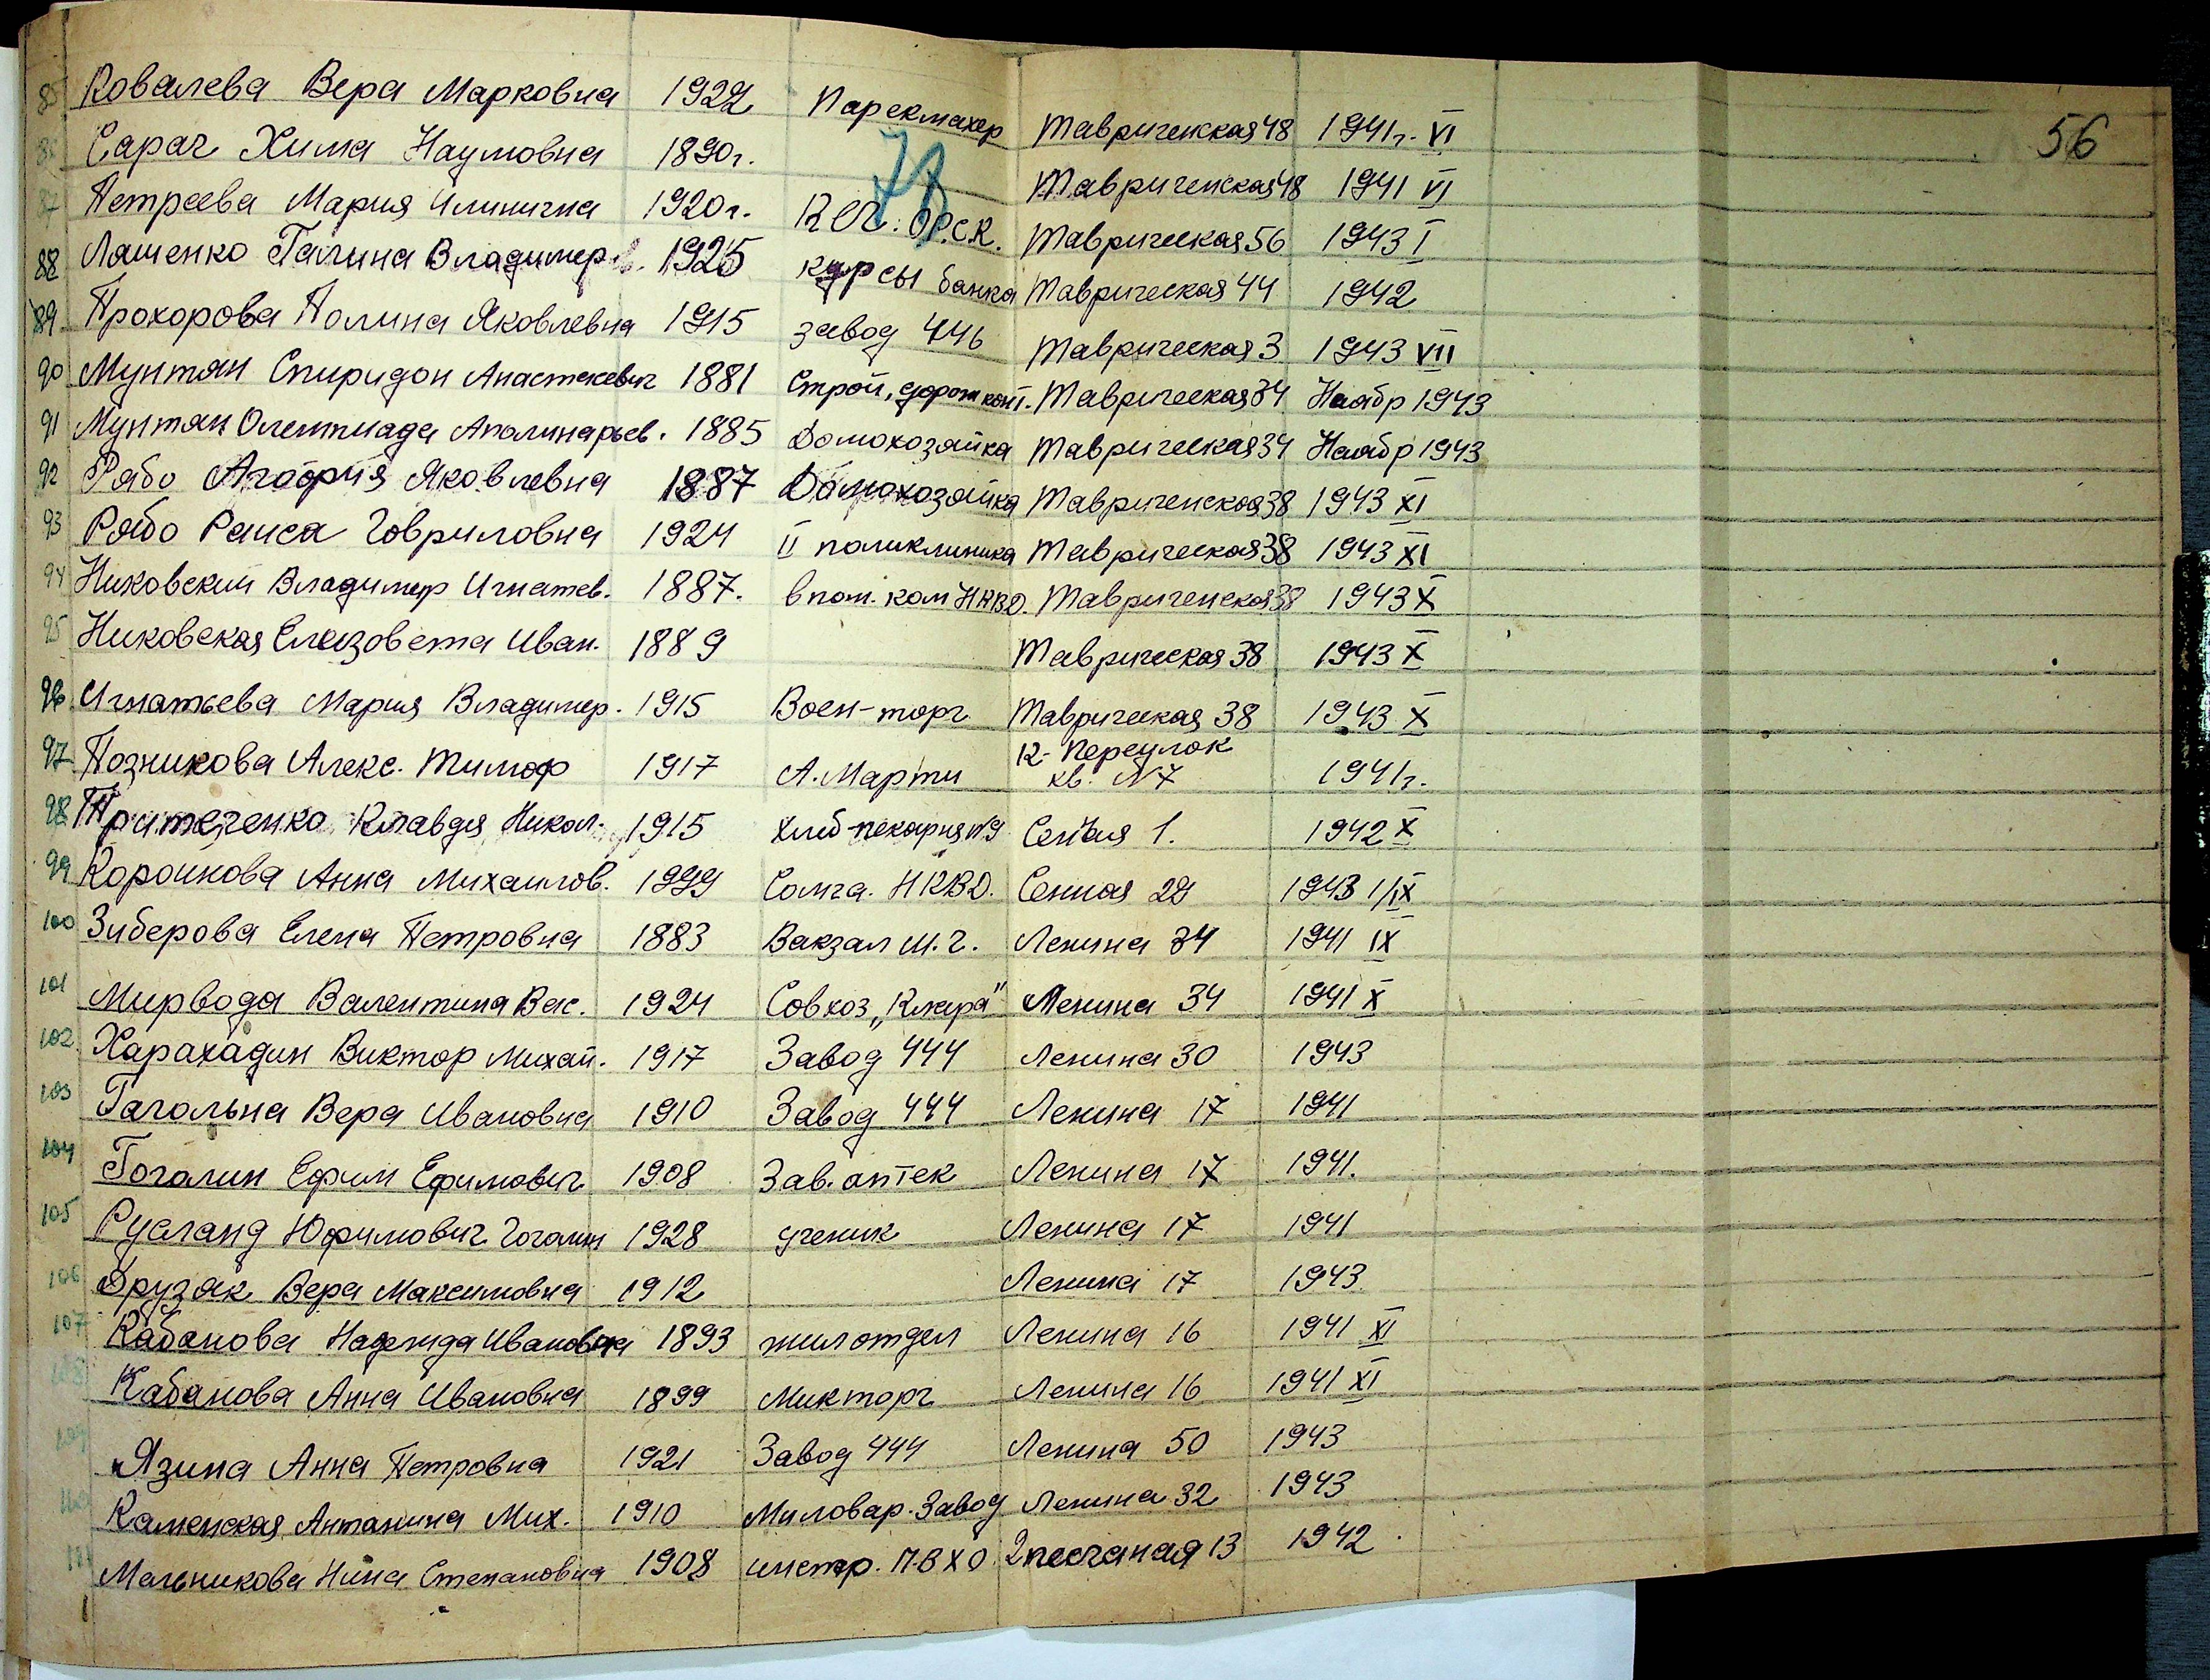 56
78
85 Ковалева Вера Марковна 1922 Парекмахер Тавриченская 48 1941г. VI
86 Сарач Хима Наумовна 1890г. Тавриченская 48 1941 VI
87 Петреева Мария Илинична 1920г. КЕЧ. ОРСК. Таврическая 56 1943 I
88 Ляшенко Галина Владимер. 1925 курсы банка Таврическая 44 1942
89 Прохорова Полина Яковлевна 1915 завод 446 Таврическая 3 1943 VII
90 Мунтян Спиридон Анастасевич 1881 Строй, дорож конт. Таврическая 34 Наябр 1943
91 Мунтян Олемпиада Аполинарьев. 1885 Домохозяйка Таврическая 34 Наябр 1943
92 Рябо Агафия Яковлевна 1887 Домохозяйка Тавриченская 38 1943 XI
93 Рябо Раиса Говриловна 1924 II поликлиника Таврическая 38 1943 XI
94 Никовский Владимер Игнатев. 1887. в пом. ком НКВД. Тавриченская 38 1943 X
95 Никовская Елизовета Иван. 1889 Таврическая 38 1943 X
96 Игнатьева Мария Владимер. 1915 Воен-торг Таврическая 38 1943 X
97 Позникова Алекс. Тимоф 1917 А. Марти К-Переулок кв. N7 1941г.
98 Клавдя Никол. 1915 Хлеб-пекарня N9 Сеная 1. 1942 X
99 Короинова Анна Михаилов. 1999 НКВД. Сенная 29 1943 1/IX
100 Зиберова Елена Петровна 1883 Вакзал М.Ч. Ленина 34 1941 IX
101 Мирвода Валентина Вас. 1924 Совхоз „Клара" Ленина 34 1941 X
102 Харахадин Виктор Михай. 1917 Завод 444 Ленина 30 1943
103 Гагольна Вера Ивановна 1910 Завод 444 Ленина 17 1941
104 Гоголин Ефим Ефимович 1908 Зав. аптек Ленина 17 1941.
105 Русланд Юфимович Гоголин 1928 ученик Ленина 17 1941
106 Друзяк Вера Максимовна 1912 Ленина 17 1943
107 Кабанова Надежда Ивановна 1893 жилотдел Ленина 16 1941 XI
108 Кабанова Анна Ивановна 1899 Микторг Ленина 16 1941 XI
109 Язина Анна Петровна 1921 Завод 444 Ленина 50 1943
110 Каменская Антанина Мих. 1910 Миловар. Завод Ленина 32 1943
111 Мальникова Нина Степановна 1908 инстр. П.В.Х.О. 2 песчаная 13 1942